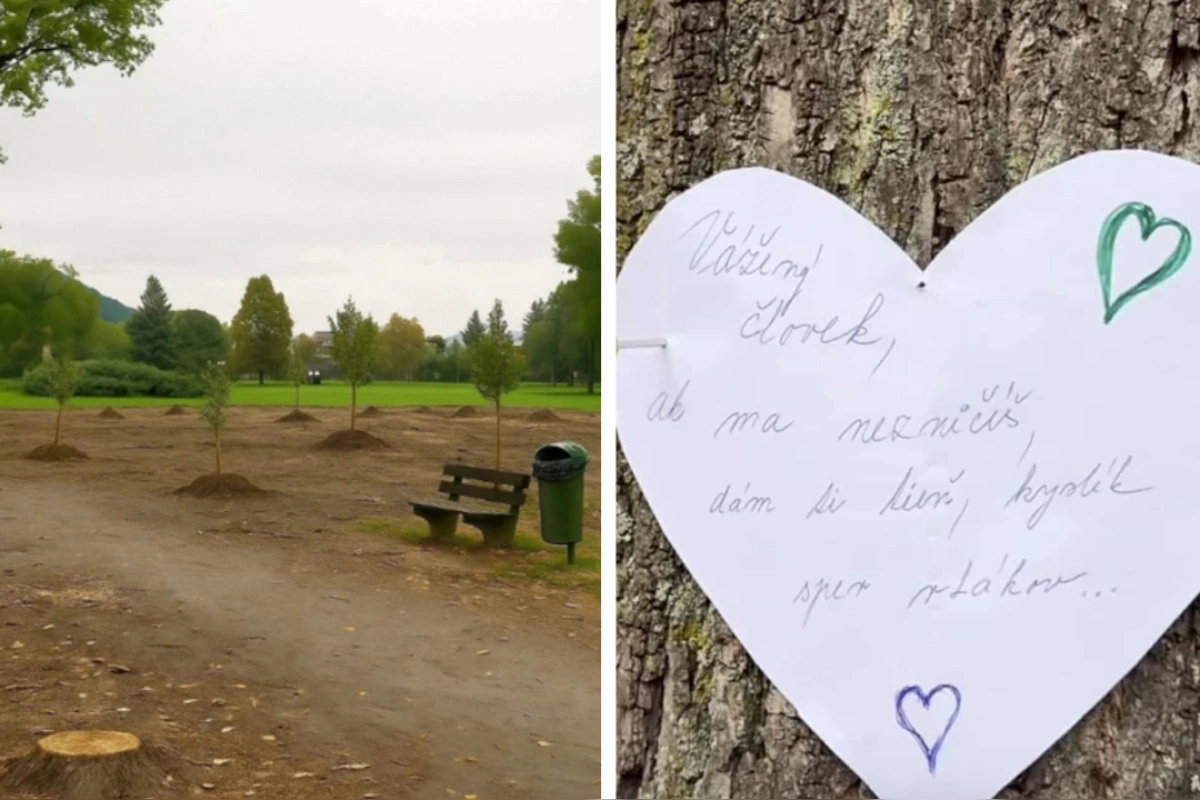 Vážený
človek,
ak ma nezničíš,
dám ti tieň, kyslík
spev vtákov...